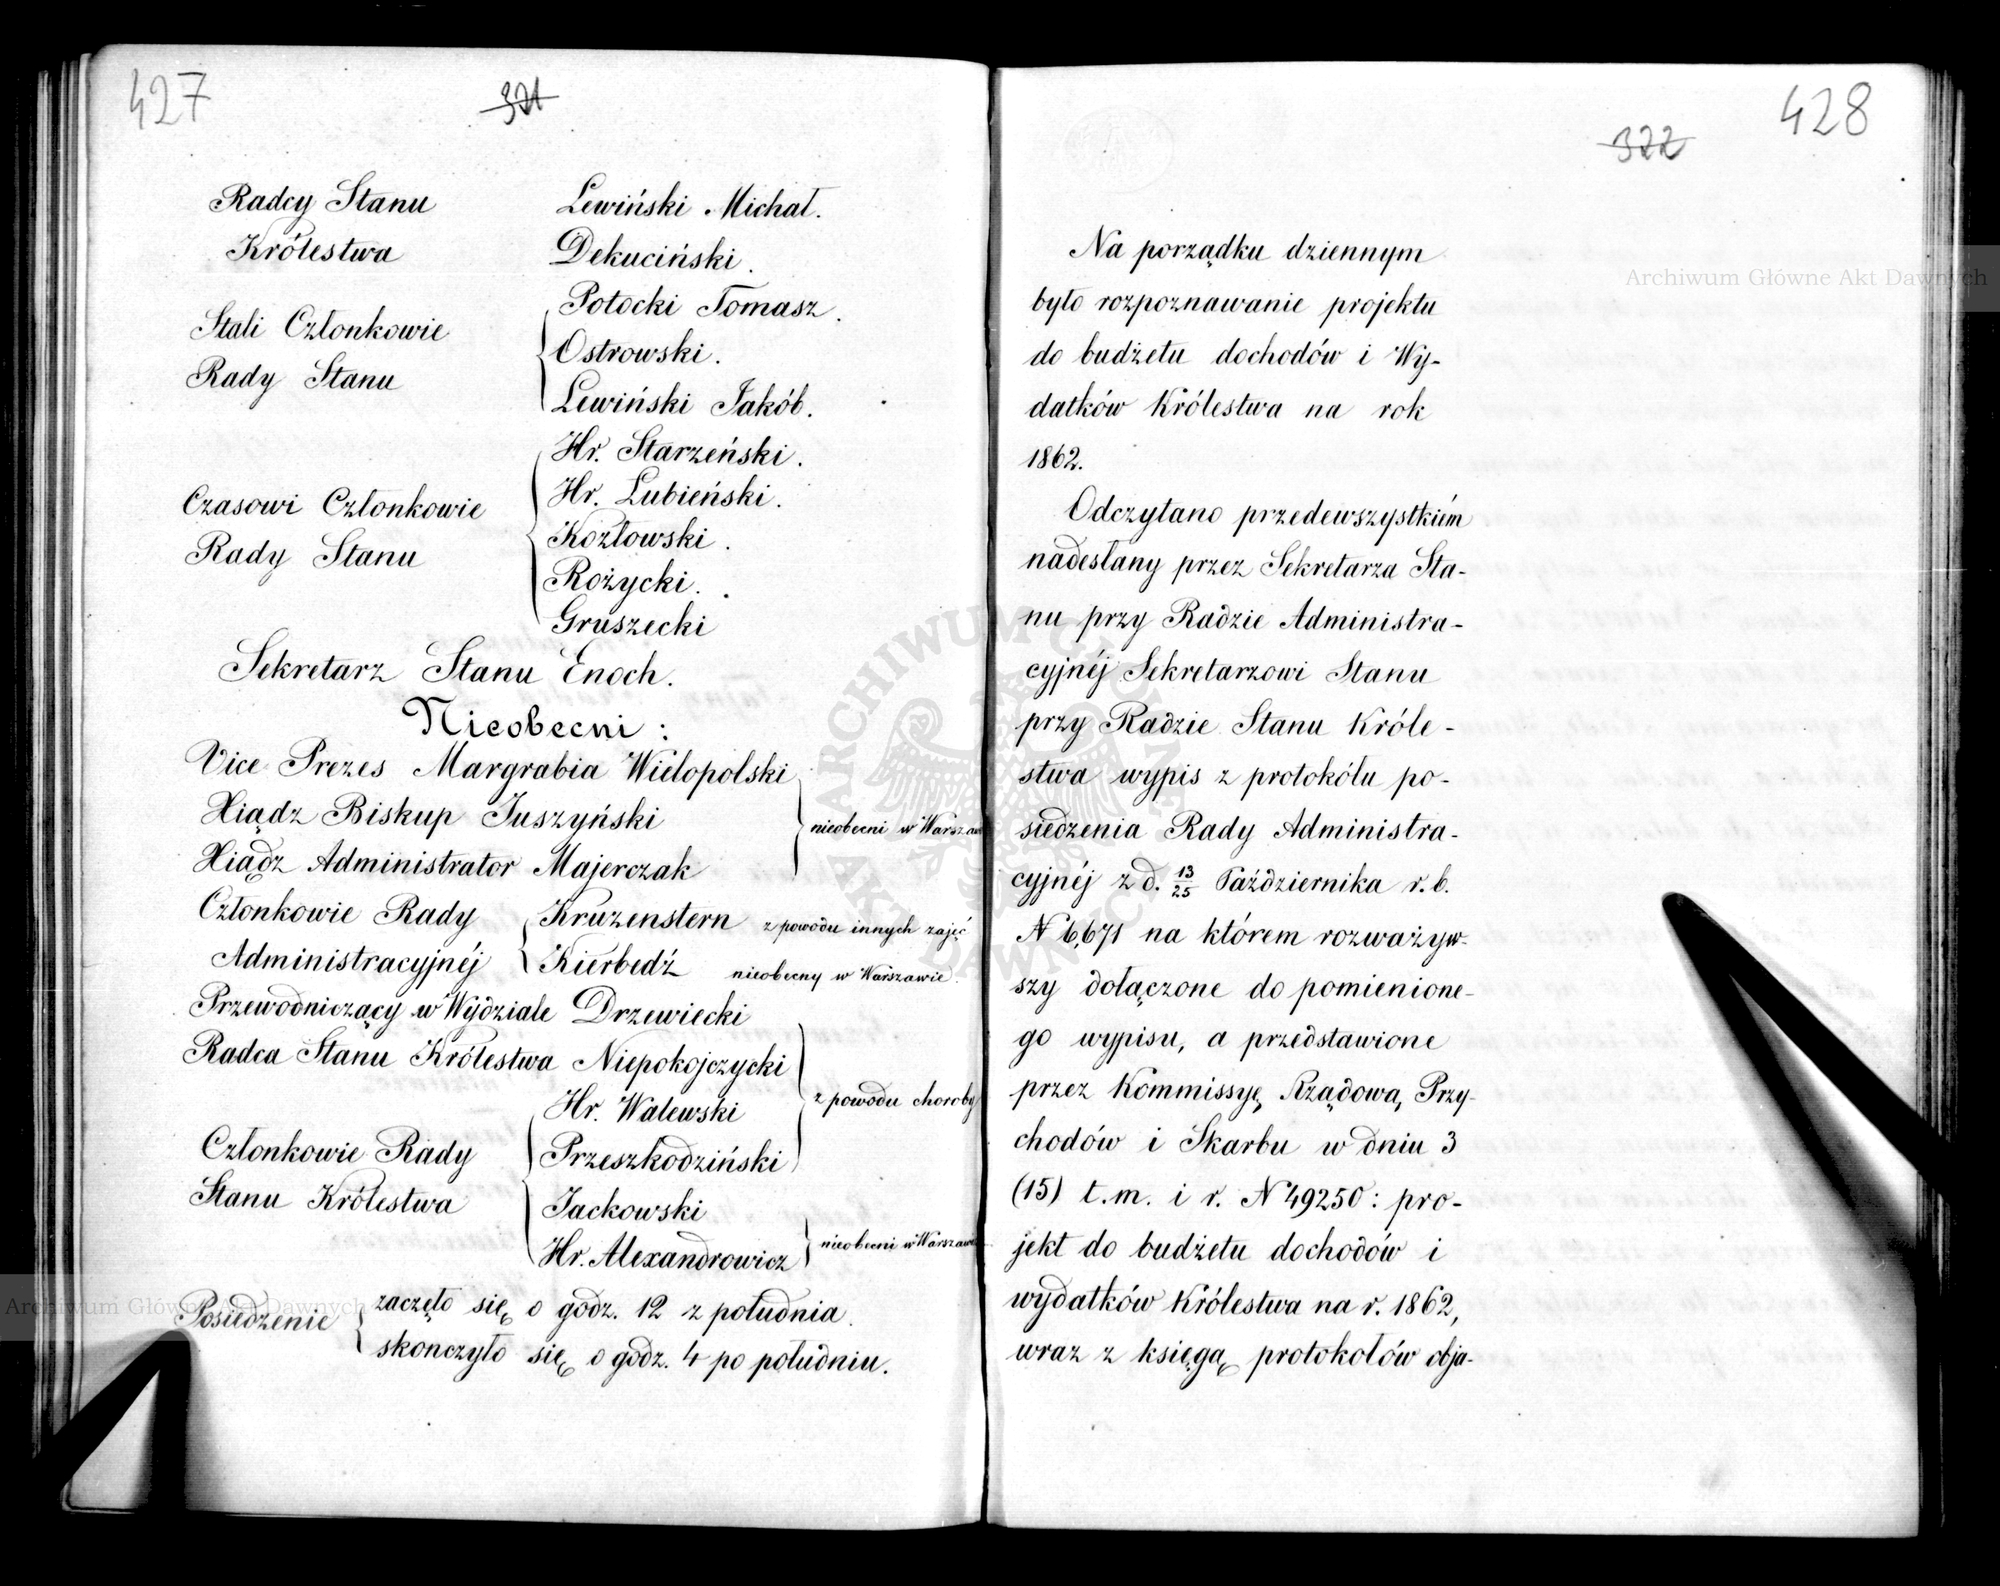 427
321
Radcy Stanu Lewiński Michał.
Królestwa Dekuciński.
Stali Członkowie Potocki Tomasz.
Rady Stanu Ostrowski.
Lewiński Jakób.
Hr. Starzeński.
Czasowi Członkowie Hr. Lubieński.
Rady Stanu Kozłowski.
Rożycki.
Gruszecki
Sekretarz Stanu Enoch.
Nieobecni:
Vice Prezes Margrabia Wielopolski
Xiądz Biskup Juszyński nieobecni w Warszaw
Xiądz Administrator Majerczak
Członkowie Rady Kruzenstern z powodu innych zajęć
Administracyjnéj Kierbedź nieobecny w Warszawie.
Przewodniczący w Wydziale Drzewiecki
Radca Stanu Królestwa Niepokojczycki
Hr. Walewski z powodu choroby
Członkowie Rady Przeszkodziński
Stanu Królestwa Jackowski
Hr. Alexandrowicz nieobecni w Warszawie
Posiedzenie zaczęło się o godz. 12 z południa.
skonczyło się o godz. 4 po południu.
428
322
Na porządku dziennym
było rozpoznawanie projektu
do budżetu dochodów i Wy-
datków Królestwa na rok
1862.
Odczytano przedewszystkiém
nadesłany przez Sekretarza Sta-
nu przy Radzie Administra-
cyjnéj Sekretarzowi Stanu
przy Radzie Stanu Króle-
stwa wypis z protokółu po-
siedzenia Rady Administra-
cyjnéj z d. 13/25 Października r. b.
N 6,671 na którem rozważyw-
szy dołączone do pomienione-
go wypisu, a przedstawione
przez Kommissyę Rządową Przy-
chodów i Skarbu w dniu 3
(15) t. m. i r. N 49250: pro-
jekt do budżetu dochodów i
wydatków Królestwa na r. 1862,
wraz z księgą protokołów obja-
Archiwum Główne Akt Dawnych
Archiwum Główne Akt Dawnych
ARCHIWUM GŁÓWNE AKT DAWNYCH